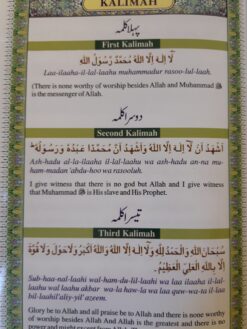 KALIMAH
پہلا کلمہ
First Kalimah
لَآ اِلٰهَ اِلَّا اللهُ مُحَمَّدٌ رَّسُوْلُ اللهِ
Laa-ilaaha-il-lal-laahu muhammadur rasoo-lul-laah.
(There is none worthy of worship besides Allah and Muhammad ﷺ
is the messenger of Allah.
دوسرا کلمہ
Second Kalimah
اَشْهَدُ اَنْ لَّآ اِلٰهَ اِلَّا اللهُ وَاَشْهَدُ اَنَّ مُحَمَّدًا عَبْدُهٗ وَرَسُوْلُهٗ
Ash-hadu al-la-ilaaha il-lal-laahu wa ash-hadu an-na mu-
ham-madan 'abdu-hoo wa rasooluh.
I give witness that there is no god but Allah and I give witness
that Muhammad ﷺ is His slave and His Prophet.
تیسرا کلمہ
Third Kalimah
سُبْحَانَ اللهِ وَالْحَمْدُ لِلّٰهِ وَلَآ اِلٰهَ اِلَّا اللهُ وَاللهُ اَكْبَرُ وَلَا حَوْلَ وَلَا قُوَّةَ
اِلَّا بِاللهِ الْعَلِيِّ الْعَظِيْمِ
Sub-haa-nal-laahi wal-ham-du-lil-laahi wa laa ilaaha il-lal-
laahu wal laahu akbar wa-la how-la wa laa quw-wa-ta il-laa
bil-laahil'aliy-yil' azeem.
Glory be to Allah and all praise be to Allah and there is none
worthy of worship besides Allah And Allah is the greatest and there is no